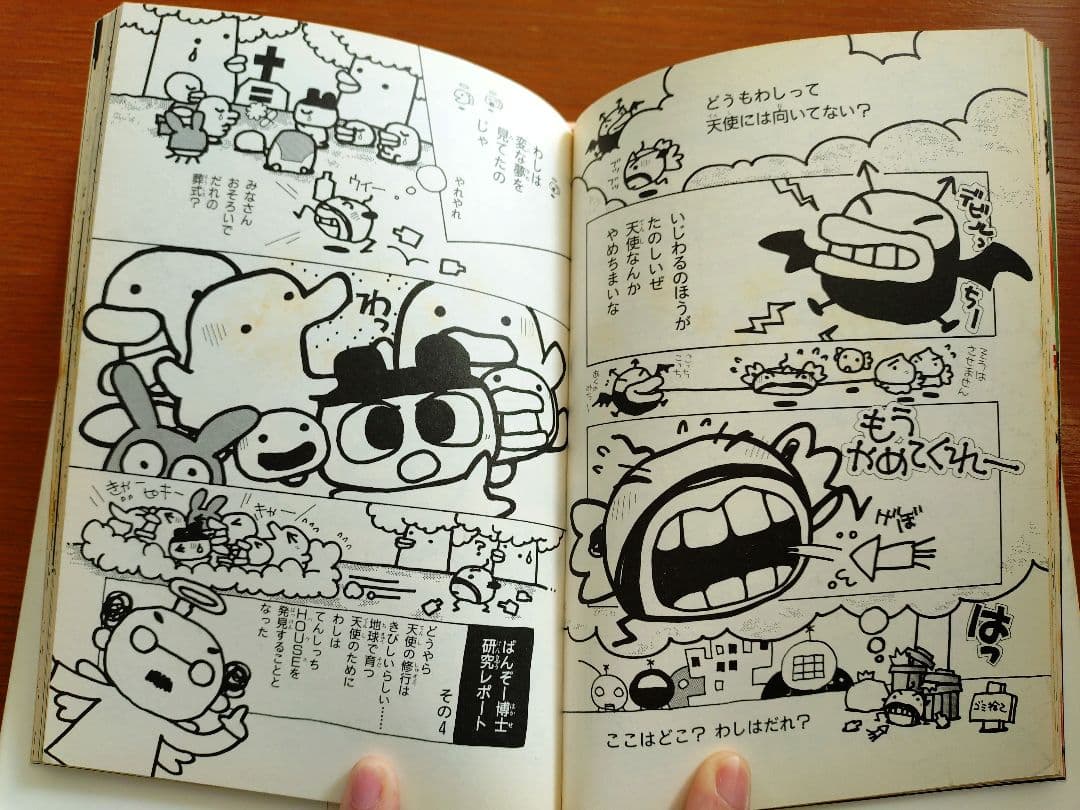 どうもわしって
天使には向いてない?
プップッ
デビ
ちー
いじわるのほうが
たのしいぜ
天使なんか
やめちまいな
そうは
させません
こっち
こっち
もう
かめてくれー
げぼ
はっ
ゴミ捨て
ここはどこ? わしはだれ?
わしは
変な夢を
見てたの
じゃ
やれやれ
ウィー
みなさん
おそろいで
だれの
葬式?
わっ
きゃー
キャー
ばんぞー博士
研究レポート
その4
どうやら
天使の修行は
きびしいらしい……
地球で育つ
天使のために
わしは
てんしっち
HOUSEを
発見することと
なった